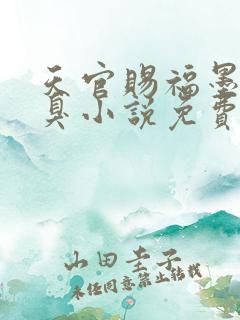 天官赐福墨
真小说免费
山田圭子
未经同意禁止转载